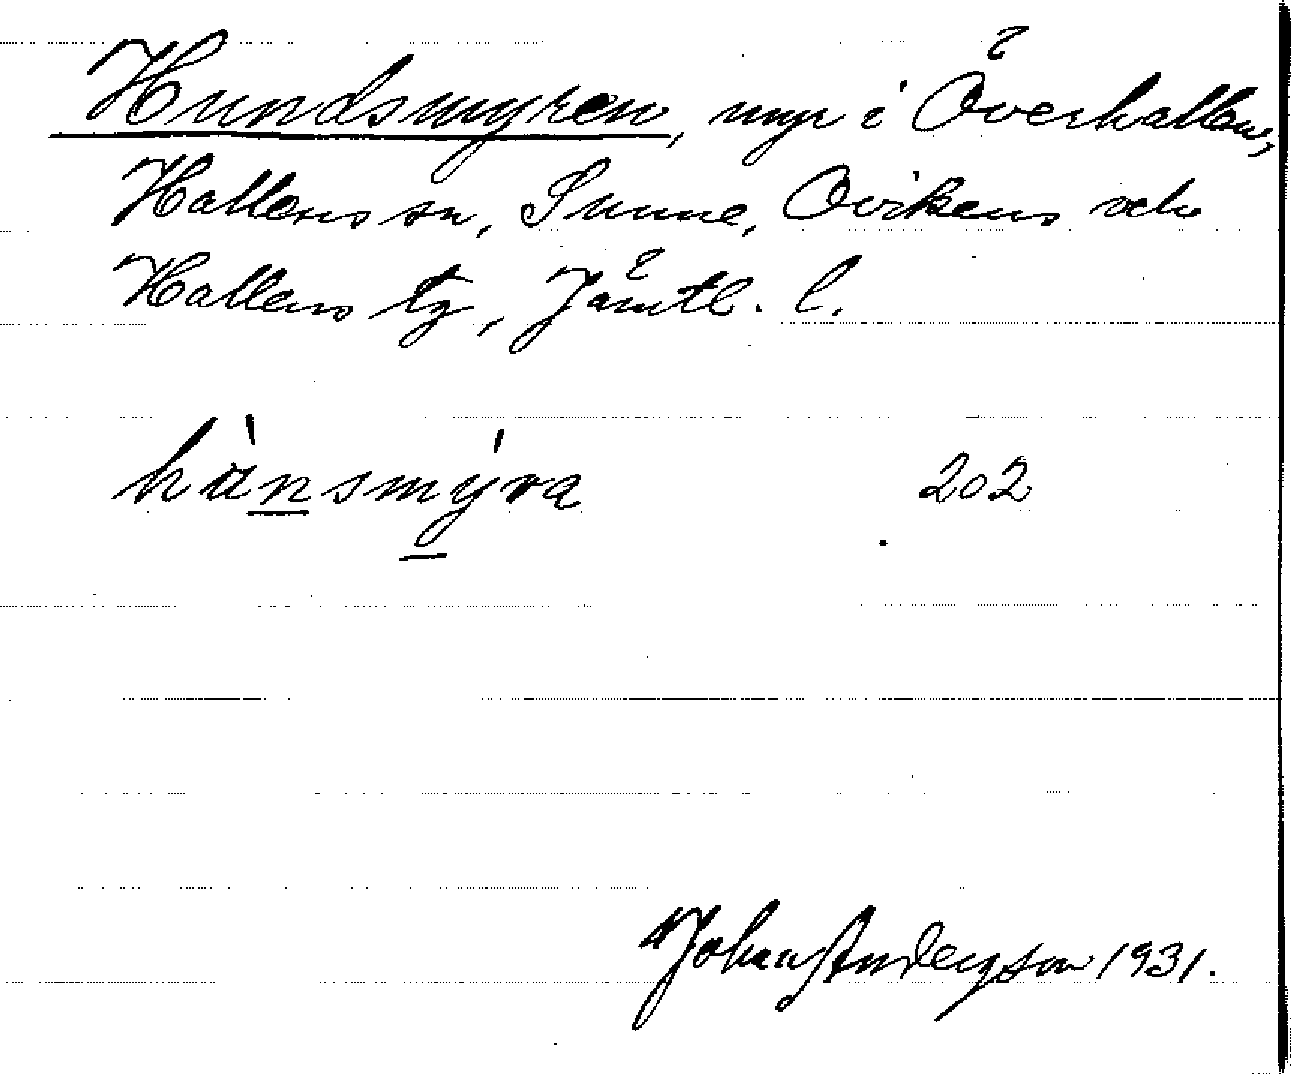 Hundsmyren, myr i Överhallen,
Hallens sn, Sunne, Ovikens och
Hallens tg, Jämtl. l.
hànsmýra 202
Johan Anderson 1931.